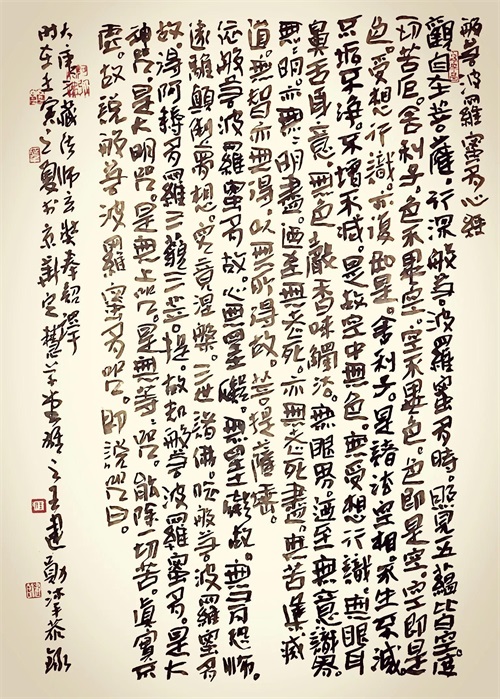 般若波羅蜜多心經
觀自在菩薩。行深般若。波羅蜜多時。照見五蘊皆空。度
一切苦厄。舍利子。色不異空。空不異色。色即是空。空即是
色。受想行識。亦復如是。舍利子。是諸法空相。不生不滅。
不垢不淨。不增不減。是故空中無色。無受想行識。無眼耳
鼻舌身意。無色聲香味觸法。無眼界。迺至無意識界。
無無明。亦無無明盡。迺至無老死。亦無老死盡。無苦集滅
道。無智亦無得。以無所得故。菩提薩埵。
依般若波羅蜜多故。心無罣礙。無罣礙故。無有恐怖。
遠離顛倒夢想。究竟涅槃。三世諸佛。依般若波羅蜜多
故。得阿耨多羅三藐三菩提。故知般若波羅蜜多。是大
神咒。是大明咒。是無上咒。是無等等咒。能除一切苦。真實不
虛。故說般若波羅蜜多咒。即說咒曰。
大唐三藏法師玄奘奉詔譯
時在壬寅之夏於京華定慧草堂雄之王建勛沐恭錄